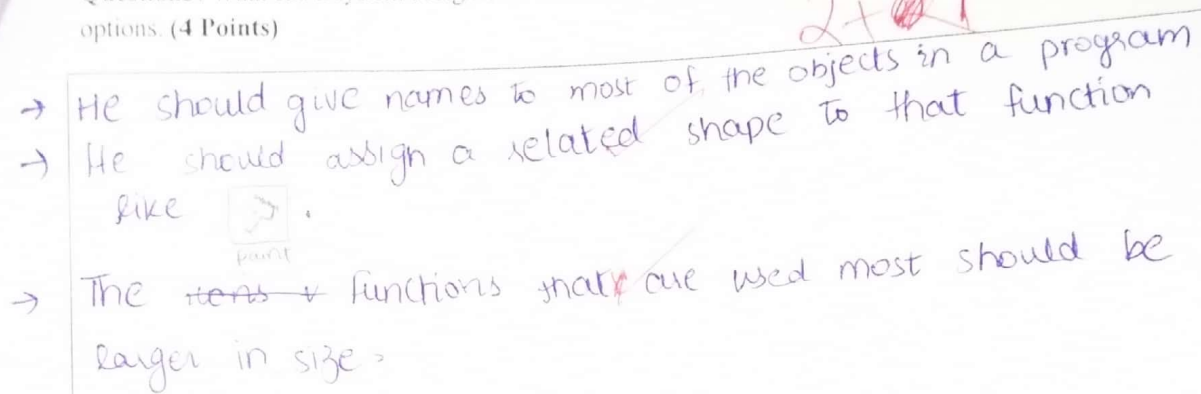 options. (4 Points)
2+1
→ He should give names to most of the objects in a program
→ He should assign a related shape to that function
like .
paint
→ The functions that are used most should be
larger in size.